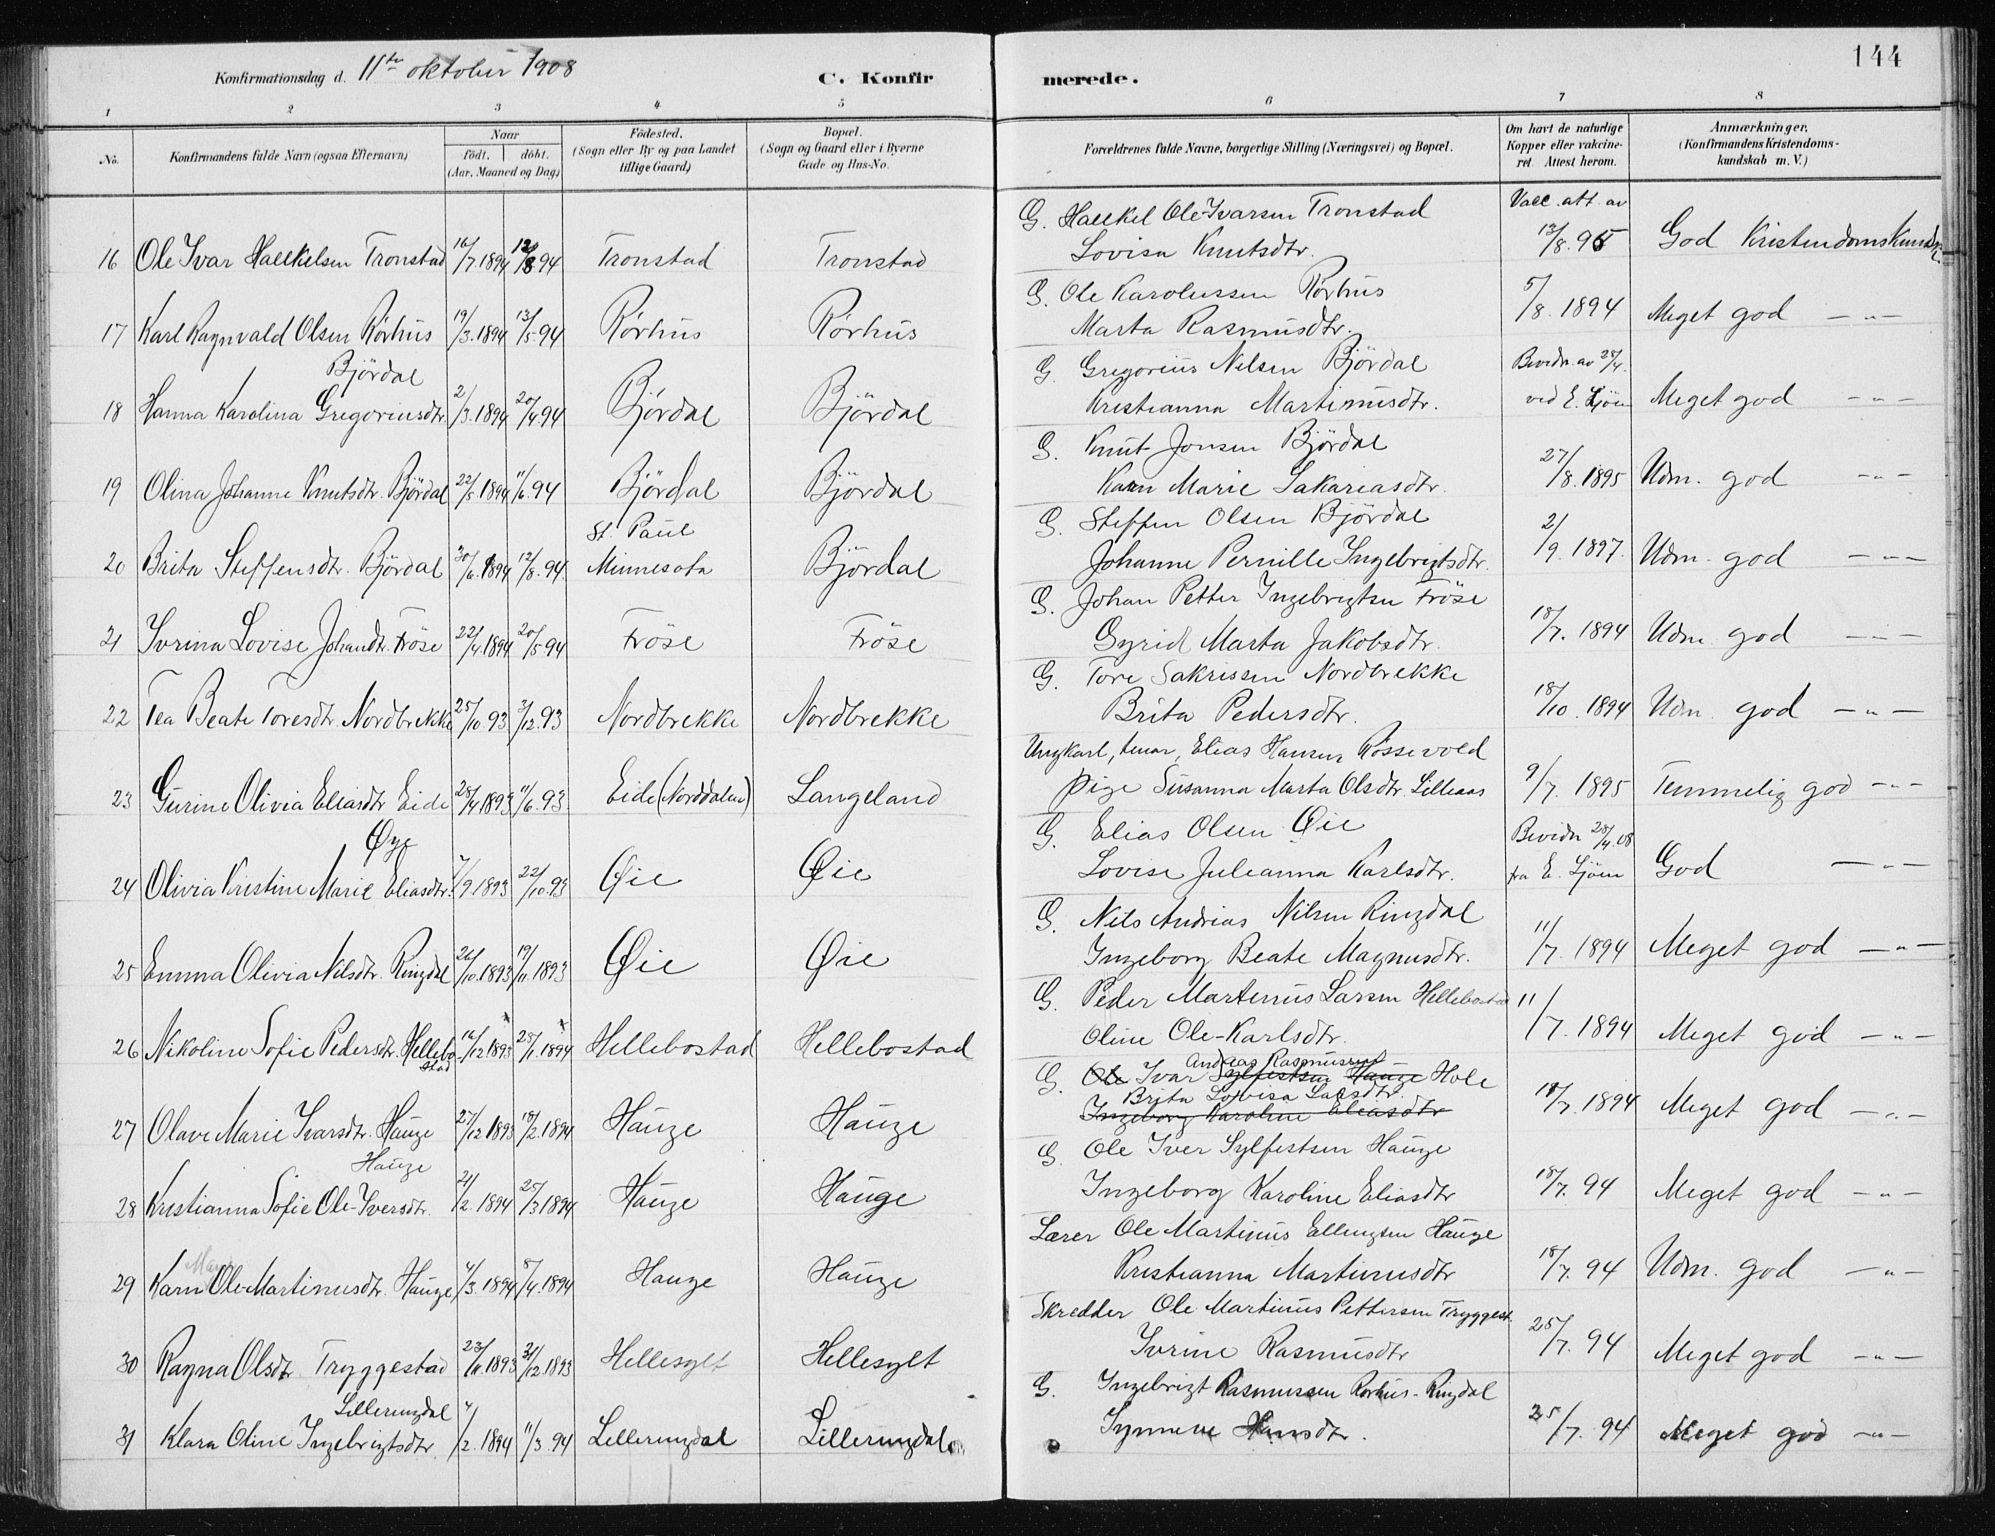 144
Konfirmationsdag d. 11te oktober 1908 C. Konfir merede.
1 2 3 4 5 6 7 8
No. Konfirmandens fulde Navn (ogsaa Efternavn) Naar födt. döbt. (Aar, Maaned og Dag) Födested. (Sogn eller By og paa Landet tillige Gaard) Bopæl. (Sogn og Gaard eller i Byerne Gade og Hus-No. Forældrenes fulde Navne, borgerlige Stilling (Næringsvei) og Bopæl. Om havt de naturlige Kopper eller vakcineret. Attest herom. Anmærkninger. (Konfirmandens Kristendomskundskab m. V.)
G. Hallkel Ole-Ivarsen Tronstad Vacc. att. av
16 Ole Ivar Hallkelsen Tronstad 16/7.1894 12/8 94 Tronstad Tronstad Lovisa Knutsdtr. 13/8.95 God Kristendomskundsk.
G. Ole Karolussen Rörhus
17 Karl Ragnvald Olsen Rörhus 19/3.1894 13/5.94 Rörhus Rörhus Marta Rasmusdtr. 5/8.1894 Meget god -"-
Björdal G. Gregorius Nilsen Björdal Bevidn. av 28/4.
18 Hanna Karolina Gregoriusdtr. 2/3.1894 20/4.94 Björdal Björdal Kristianna Martinusdtr. ved E. Ljöen Meget god -"-
G. Knut Jonsen Björdal
19 Olina Johanne Knutsdtr. Björdal 22/5.1894 11/6.94 Björdal Björdal Karn Marie Sakariasdtr. 27/8.1895 Udm. god -"-
St. Paul G. Steffen Olsen Björdal
20 Brita Steffensdtr. Björdal 30/6.1894 12/8.94. Minnesota Björdal Johanne Pernille Ingebrigtsdtr. 2/9.1897. Udm. god -"-
G. Johan Petter Ingebrigtsen Fröse
21 Ivrina Lovise Johandtr. Fröse 22/4.1894 20/5.94 Fröse Fröse Gyrid Marta Jakobsdtr. 18/7.1894 Udm. god -"-
G. Tore Sakrissen Nordbrekke
22 Tea Beate Toresdtr. Nordbrekke 25/10.93 31/12.93 Nordbrekke Nordbrekke Brita Pedersdtr. 18/10.1894 Udm. god -"-
Ungkarl, tenar, Elias Hansen Rossevold
23 Gurine Olivia Eliasdtr Eide 28/4.1893 11/6.93 Eide (Norddalen) Langeland Pige Susanna Marta Olsdtr. Lilleaas 9/7.1895 Temmelig god -"-
Øye G. Elias Olsen Øie Bevidn 28/4.08
24 Olivia Kristine Marie Eliasdtr. 7/9.1893 22/10.93 Øie Øie Lovise Julianna Karlsdtr. fra E. Ljöen God -"-
G. Nils Andrias Nilsen Ringdal
25 Emma Olivia Nilsdtr. Ringdal 26/10.1893 19/11.1893 Øie Øie Ingeborg Beate Magnusdtr. 11/7.1894 Meget god -"-
G. Peder Martinus Larsen Hellebostad
26 Nikoline Sofie Pedersdtr. Hellebostad 16/12 1893 25/1.1894 Hellebostad Hellebostad Oline Ole-Karlsdtr. 11/7.1894 Meget god -"-
Andreas Rasmussen
G. Ole Ivar Sylfestsen Hauge Hole
Brita Lovisa Larsdtr.
27 Olave Marie Ivarsdtr. Hauge 27/12 1893 18/2.1894 Hauge Hauge Ingeborg Karoline Eliasdtr 18/7.1894 Meget god -"-
Hauge G. Ole Iver Sylfestsen Hauge
28 Kristianna Sofie Ole-Iversdtr. 21/2.1894 25/3 1894 Hauge Hauge Ingeborg Karoline Eliasdtr 18/7.94 Meget god -"-
Marie Lærer Ole Martinus Ellingsen Hauge
29 Karn Ole-Martinusdtr. Hauge 4/3.1894 8/4.1894 Hauge Hauge Kristianna Martinusdtr 18/7.94 Udm. god -"-
Skredder Ole Martinus Pettersen Tryggest.
30 Ragna Olsdtr. Tryggestad 23/11.1893 31/12 1893 Hellesylt Hellesylt Ivrine Rasmusdtr 25/7.94 Meget god -"-
Lilleringdal G. Ingebrigt Rasmussen Rörhus-Ringdal
31 Klara Oline Ingebrigtsdtr 4/2.1894 11/3.94 Lilleringdal Lilleringdal Synneve Hansdtr. 25/7.94 Meget god -"-